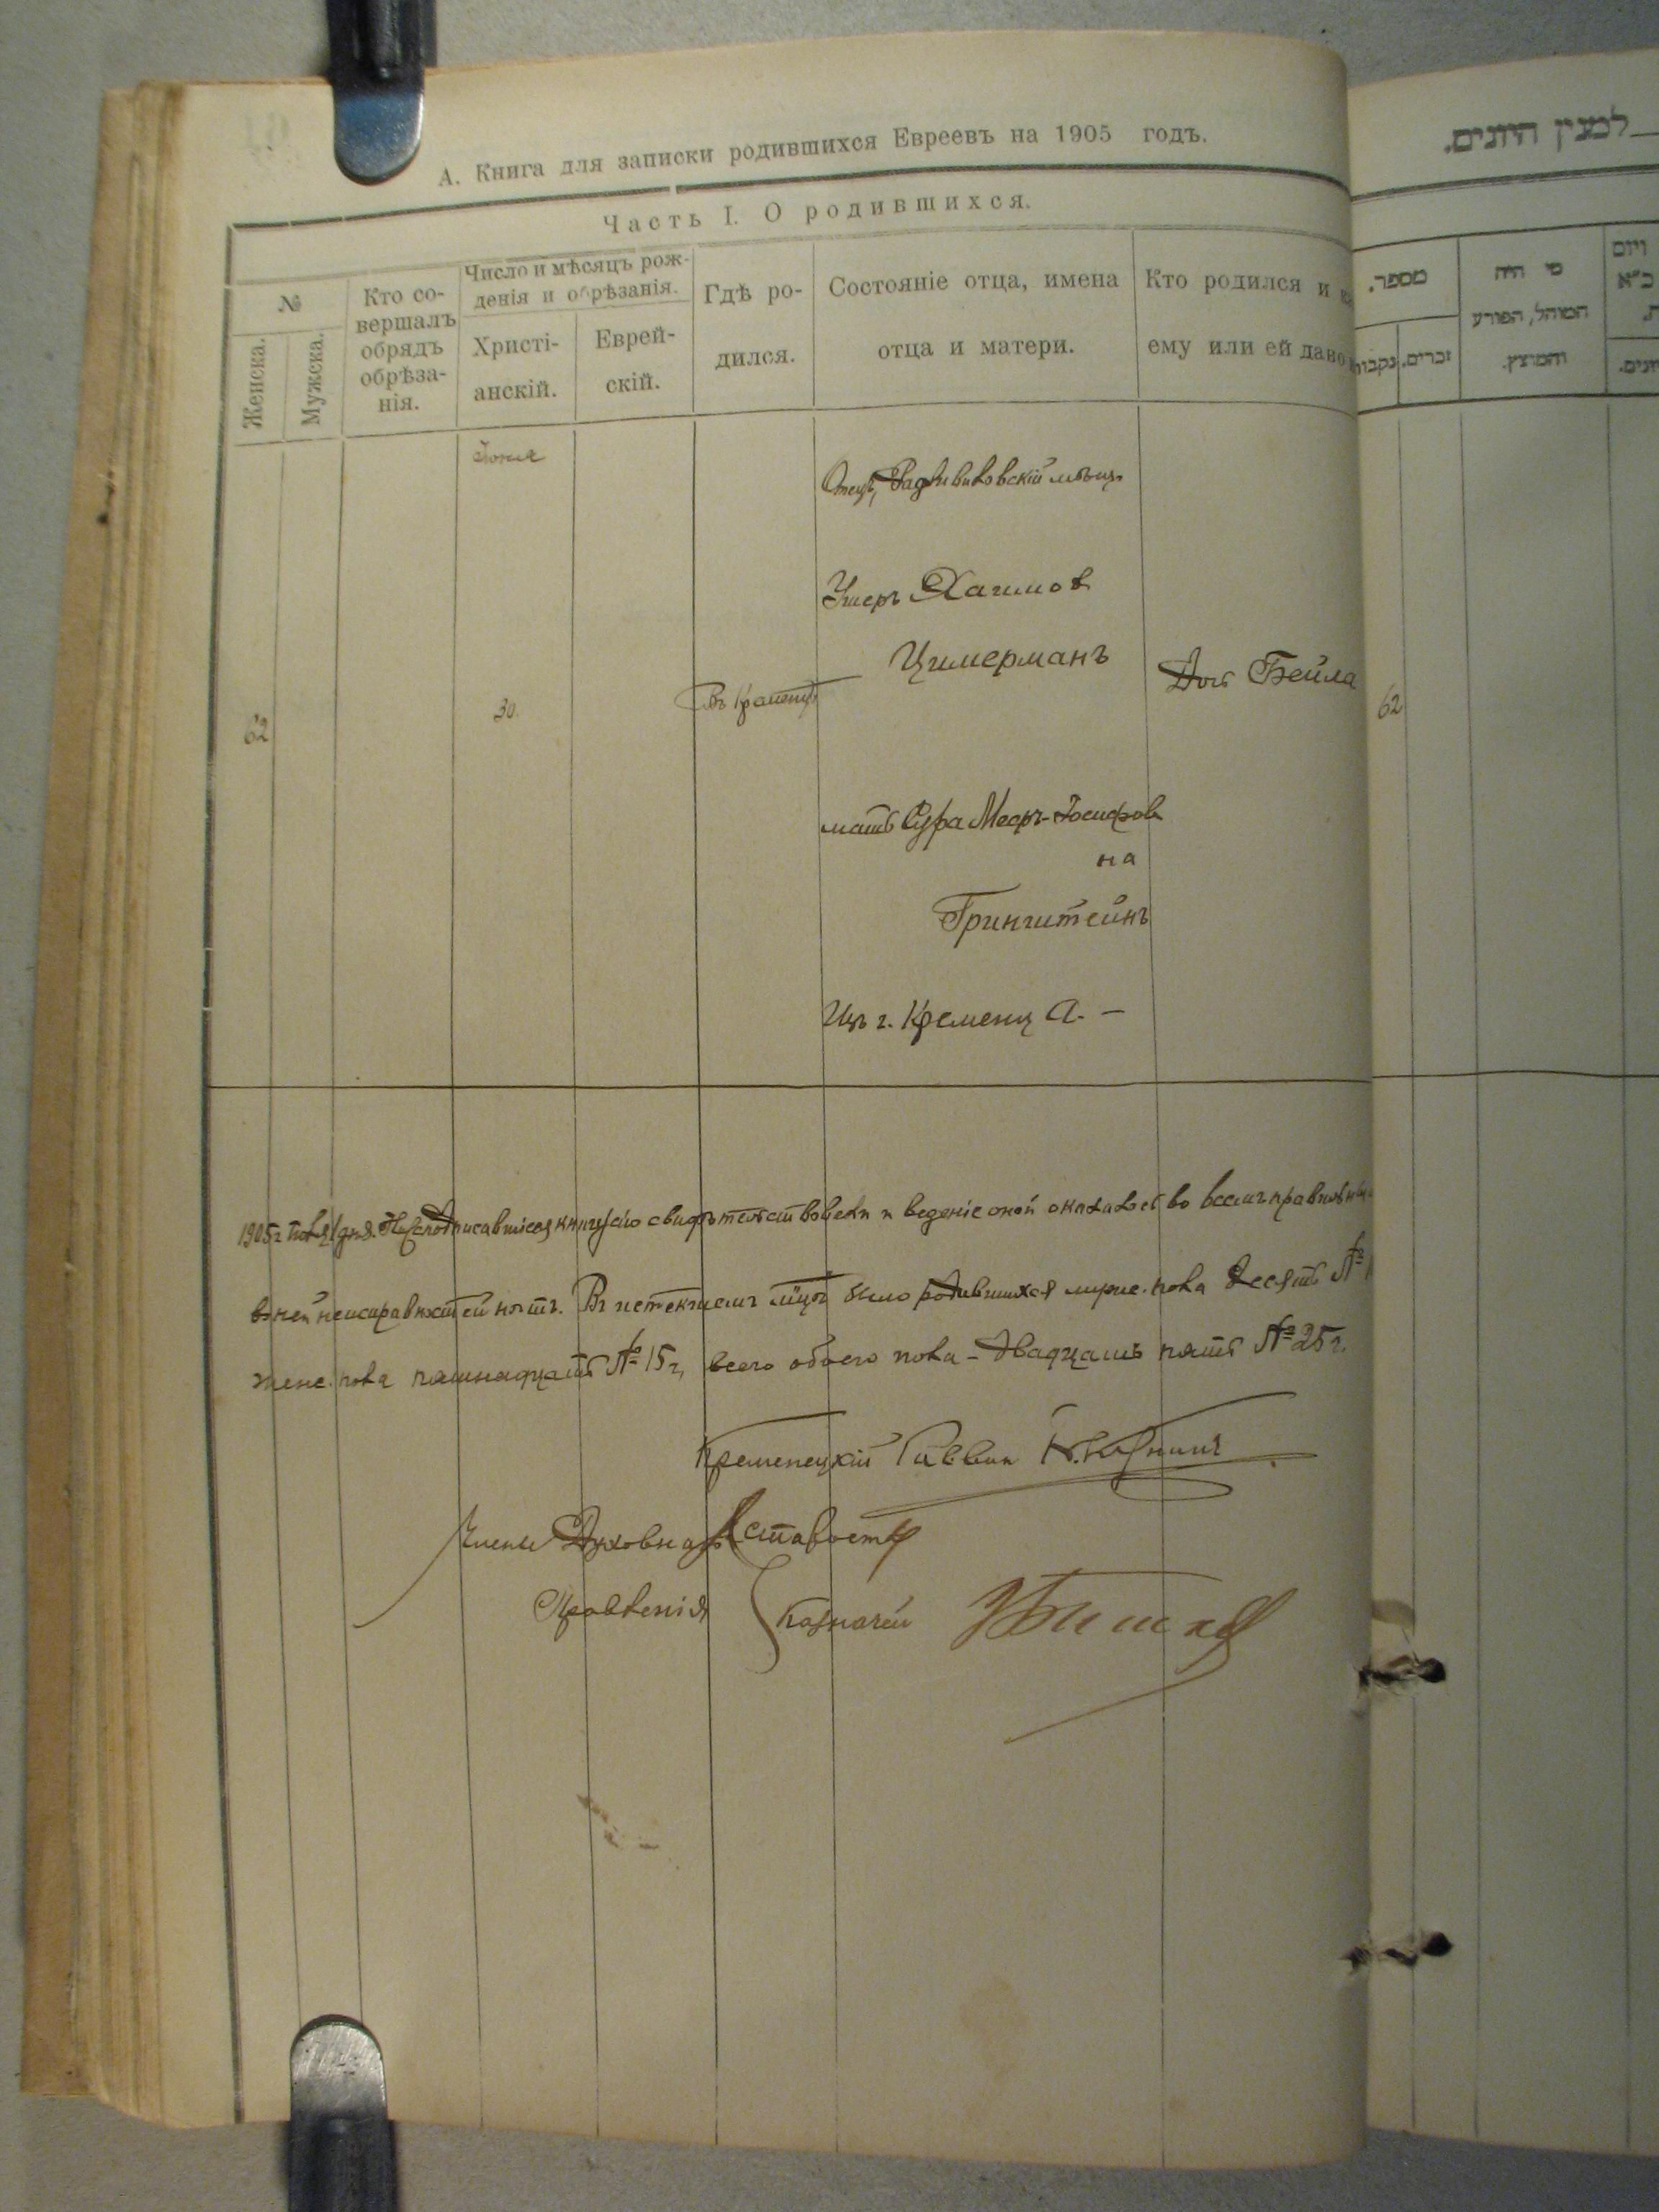 А. Книга для записки родившихся Евреевъ на 1905 годъ.
Часть I. О родившихся.
№
Женска.
Мужска.
Кто со-
вершалъ
обрядъ
обрѣза-
нія.
Число и мѣсяцъ рож-
денія и обрѣзанія.
Христі-
анскій.
Еврей-
скій.
Гдѣ ро-
дился.
Состояніе отца, имена
отца и матери.
Кто родился и
ему или ей дано
Іюня
62
30.
Въ Кременцѣ
Отецъ, Радзивиловскій мѣщ.
Ушеръ Хаимов
Цимерманъ
мать Сура Меер-Іосифов
на
Гринштейнъ
Изъ г. Кременц а. —
Дочь Бейла
1905 г. дня. книгу сію свидѣтельствовали и веденіе оной оказалось во всемъ правильны
въ ней неисправностей нѣтъ. Въ истекшемъ м-цѣ было родившихся мужс. пола десять №
женс. пола пятнадцать № 15 г, всего обоего пола - двадцать пять № 25 г.
Кременецкій Раввин
Члены Духовнаго Староста
Правленія Казначей
למנין היונים.
מספר.
זכרים.
נקבות
מי היה
המוהל, הפורע
והמוצץ.
ויום
כ"א
62